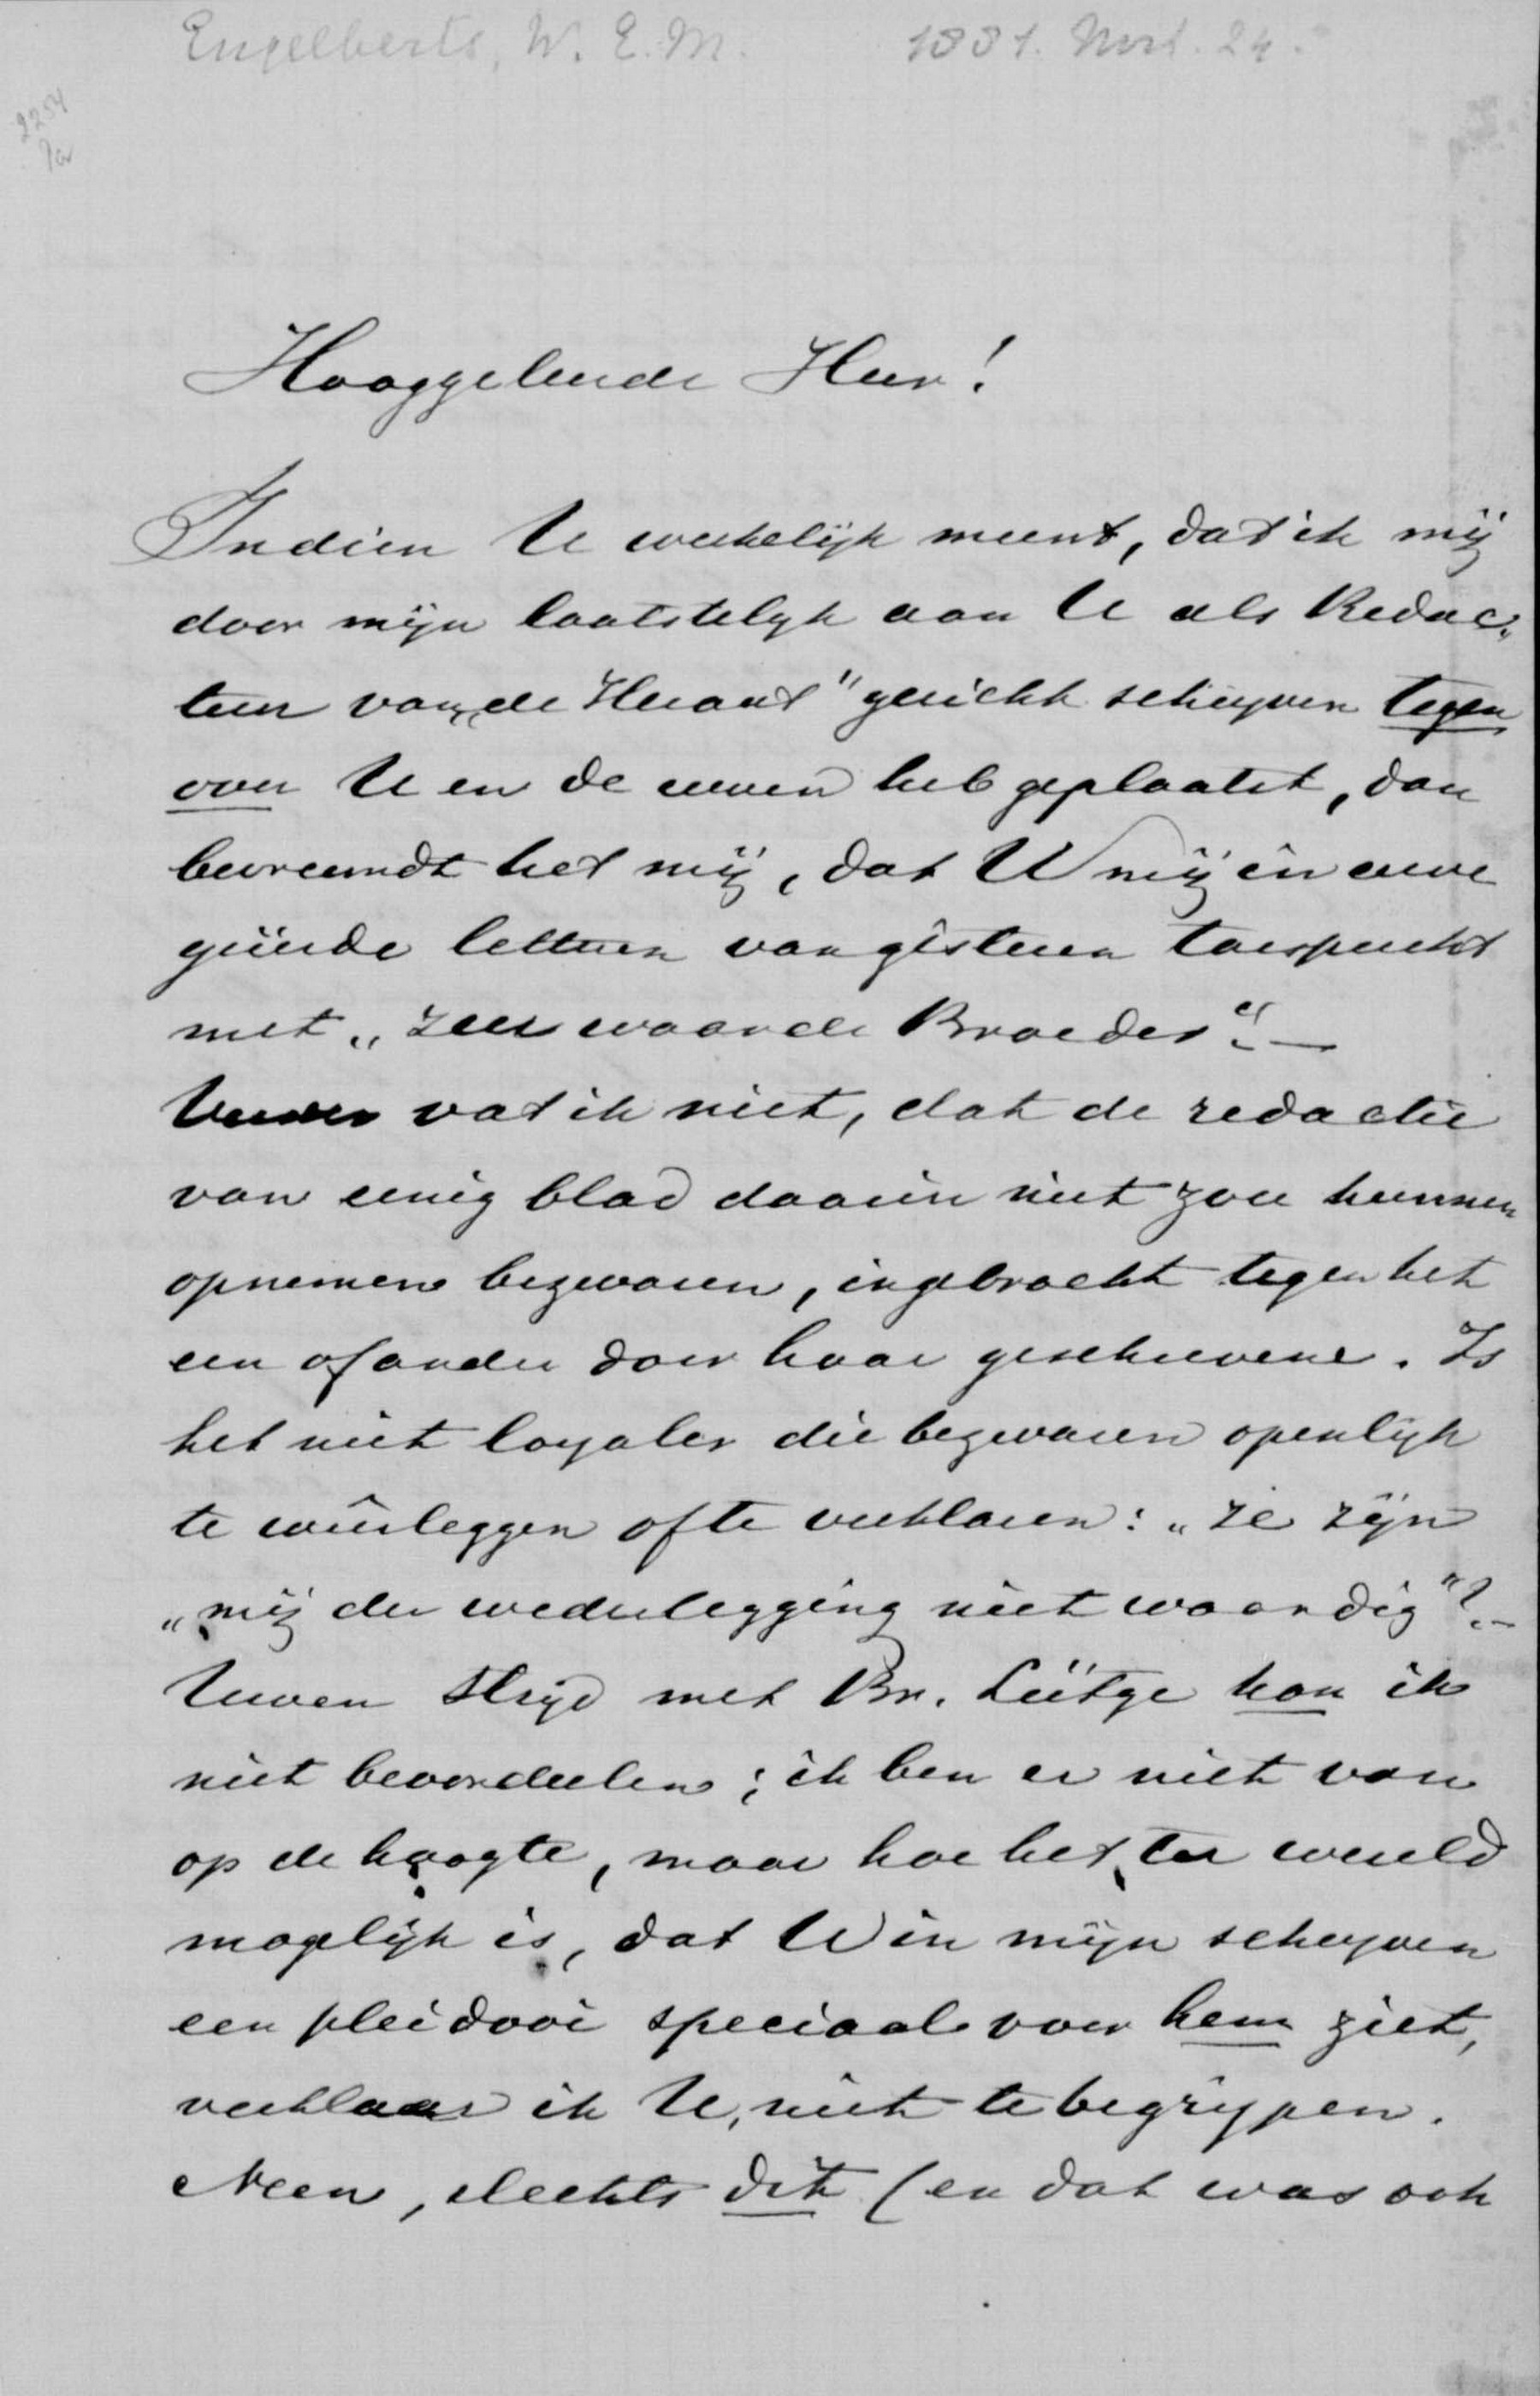 Engelberts, W. E. M. 1881. Mrt. 24.
2254
Hooggeleerde Heer!
Indien U werkelijk meent, dat ik mij
door mijn laatstelijk aan U als Redac„
teur van „de Heraut" gericht schrijven tegen
over U en de uwen heb geplaatst, dan
bevreemdt het mij, dat U mij in uwe
geëerde letteren van gisteren toespreekt
met „zeer waarde Broeder". —
Verder vat ik niet, dat de redactie
van eenig blad daarin niet zou kunnen
opnemen bezwaren, ingebracht tegen het
een of ander door haar geschrevene. Is
het niet loyaler die bezwaren openlijk
te weerleggen of te verklaren: „ze zijn
„mij der wederlegging niet waardig"? –
Uwen strijd met Br. Lütge kan ik
niet beoordeelen; ik ben er niet van
op de hoogte, maar hoe het ter wereld
mogelijk is, dat U in mijn schrijven
een pleidooi speciaal voor hem ziet,
verklaar ik U, niet te begrijpen.
Neen, slechts dit (en dat was ook